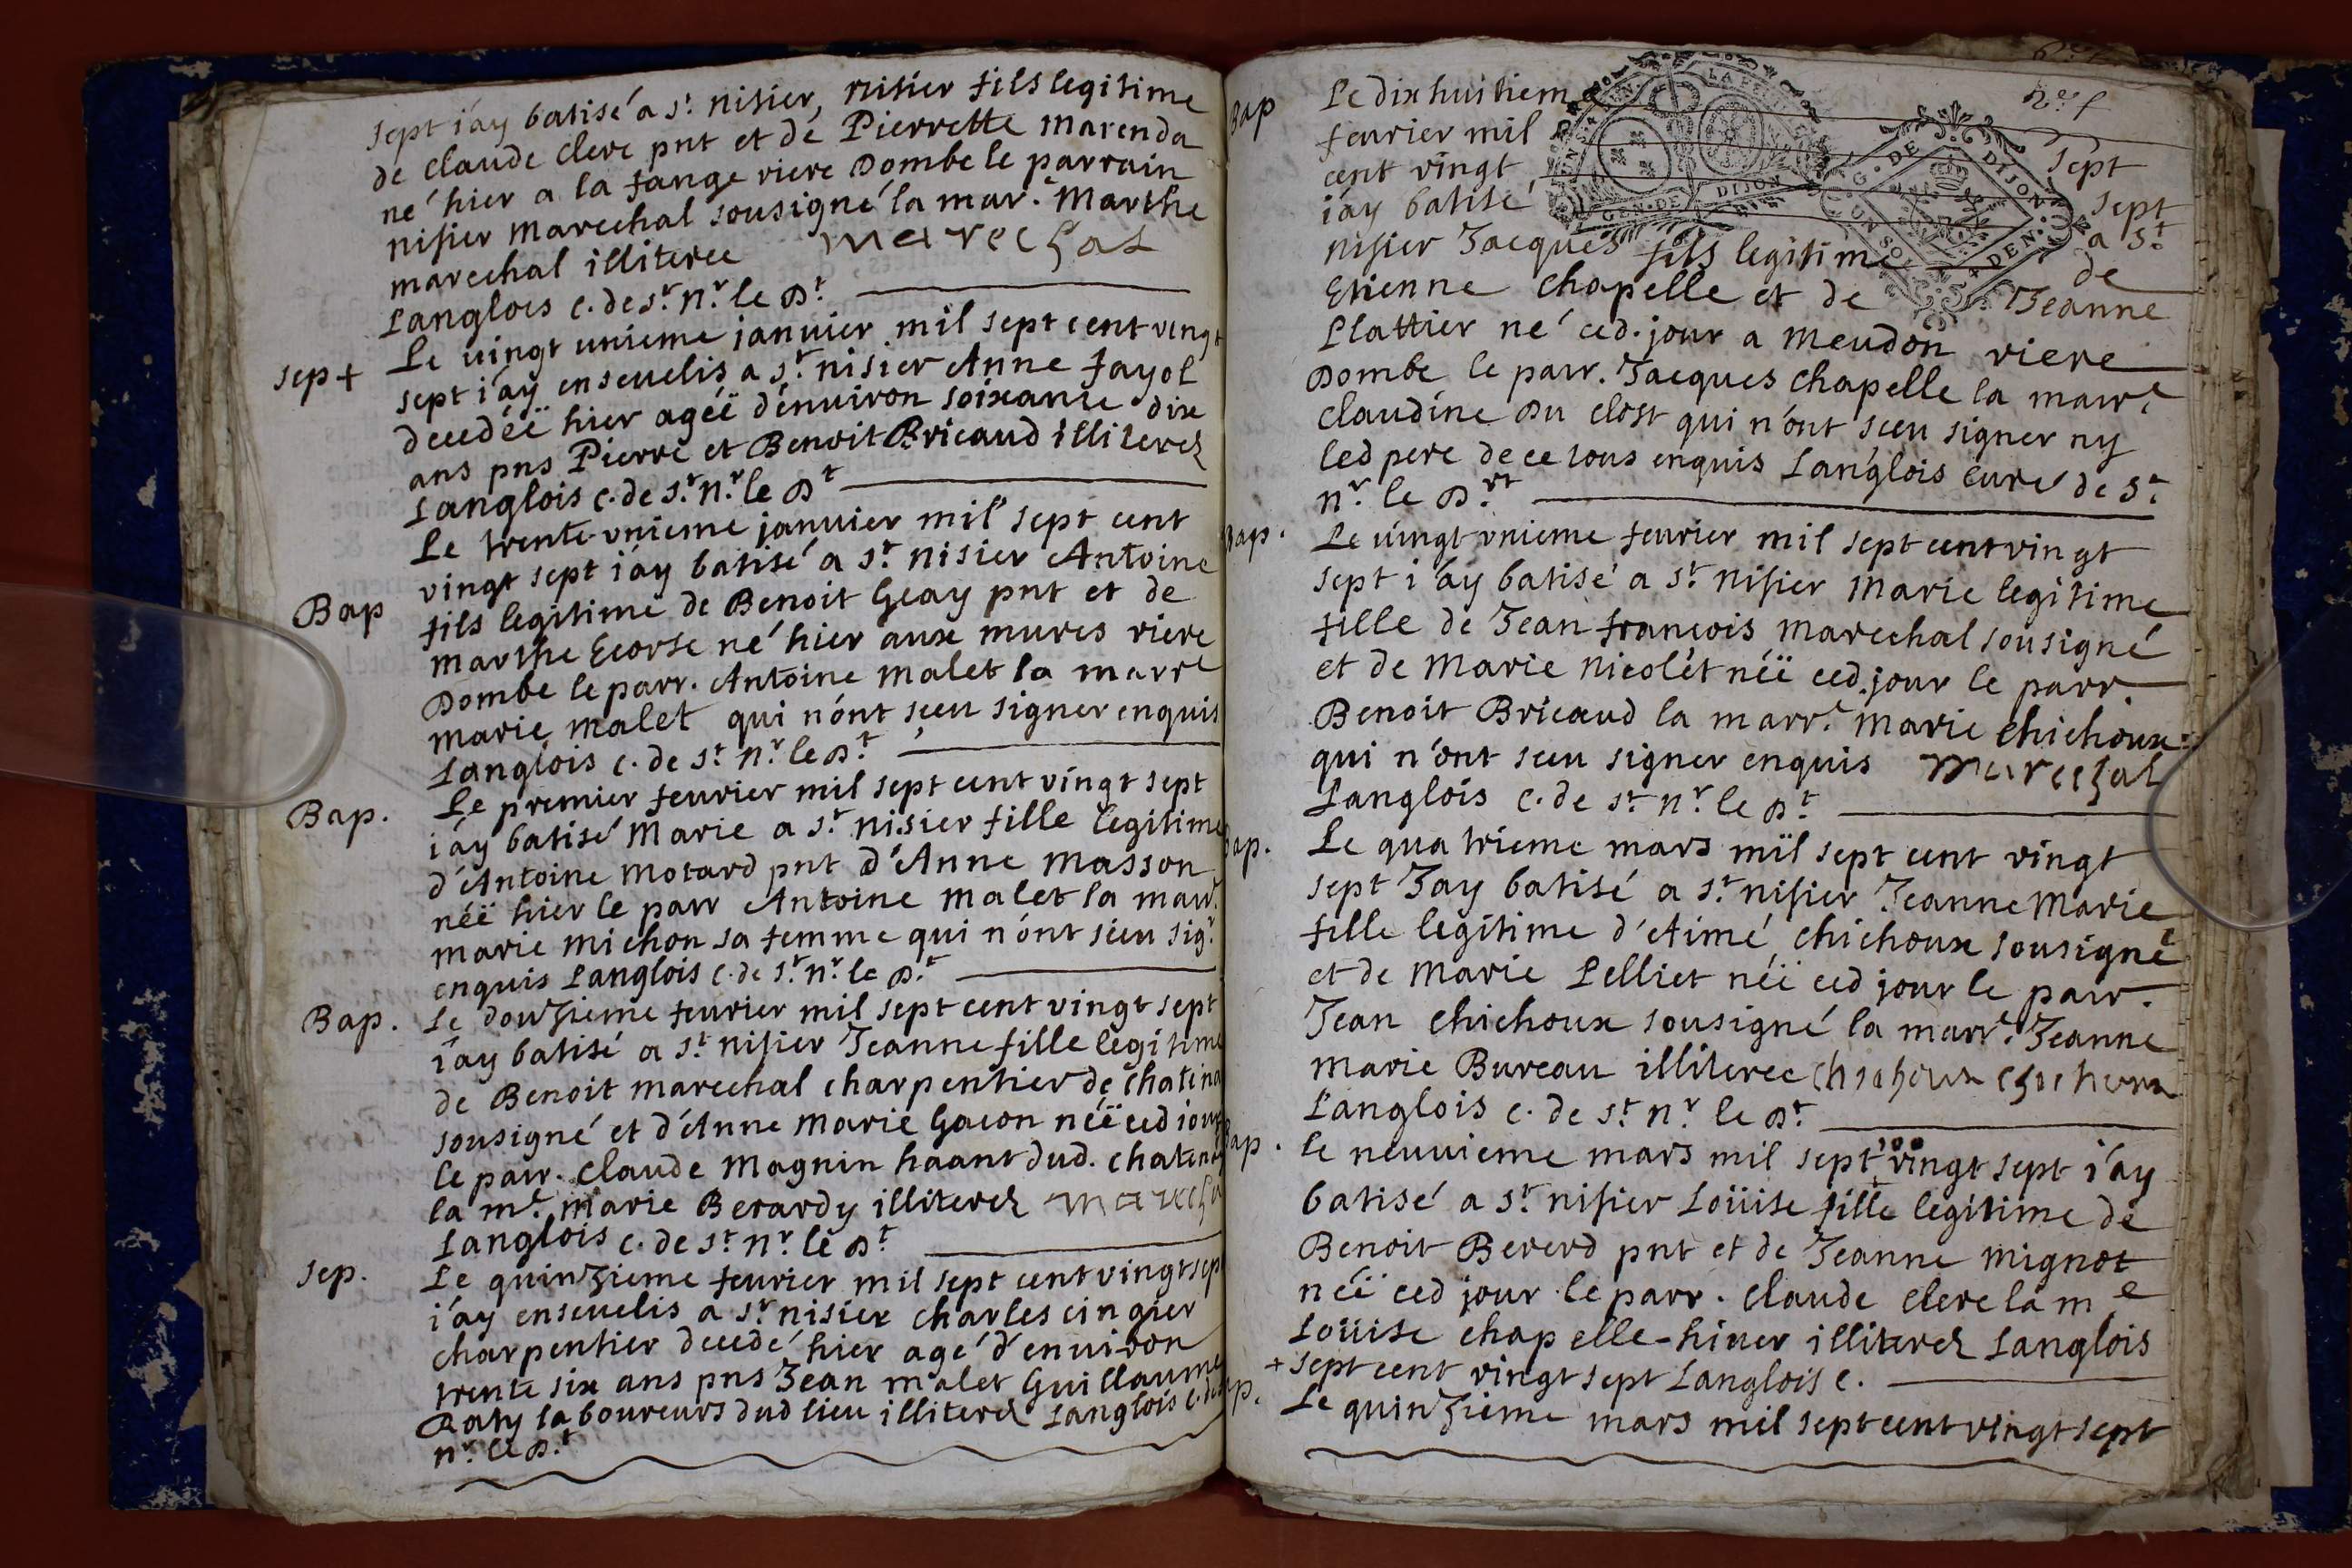 sept i'ay batisé a St. nisier, nisier fils legitime
de claude clerc pnt et de Pierrette marenda
né hier a la fange riere Dombe le parrain
nisier marechal sousigné la mar.e Marthe
marechal illiteree marechal
Langlois c. de St. nr. le Dt.
sep + Le vingt unieme januier mil sept cent vingt
sept i'ay enseuelis a St. nisier Anne fayol
decedéë hier agéë d'enuiron soixante dix
ans pns Pierre et Benoit Bricaud illiterez
Langlois c. de St. nr. le Dt
Le trente unieme januier mil sept cent
vingt sept i'ay batisé a St. nisier Antoine
Bap fils legitime de Benoit Geay pnt et de
marthe Ecorse né hier aux mures riere
Dombe le parr. Antoine malet la marre
marie malet qui n'ont sçeu signer enquis
Langlois c. de St. nr. le Dt
Bap. Le premier feurier mil sept cent vingt sept
i'ay batisé Marie a St. nisier fille legitime
d'Antoine motard pnt d'Anne masson
néë hier le parr Antoine malet la marr.
marie michon sa femme qui n'ont sceu sigr
enquis Langlois c. de St. nr. le Dt
Bap. Le douzieme feurier mil sept cent vingt sept
i'ay batisé a St. nisier Jeanne fille legitime
de Benoit marechal charpentier de chatena
sousigné et d'Anne Marie Gacon néë ced iour
le parr. claude Magnin haant dud. chatenay
la me. marie Berardy illiterez marecha
Langlois c. de St. nr. le Dt
sep. Le quinzieme feurier mil sept cent vingt sep
i'ay enseuelis a St. nisier charles cingier
charpentier decedé hier agé d'enuiron
trente six ans pns Jean malet Guillaume
Raty laboureurs dud lieu illiterez Langlois c. de St
nr. le Dt
Bap Le dixhuitieme
feurier mil sept
cent vingt sept
i'ay batisé a St.
nisier Jacques fils legitime de
Etienne chapelle et de Jeanne
Plattier né ced. jour a meudon riere
Dombe le parr. Jacques chapelle la marre
claudine Du clost qui n'ont sceu signer ny
led pere de ce tous enquis Langlois curé de St.
nr. le Drt
Bap. Le vingt unieme feurier mil sept cent vingt
sept i'ay batisé a St. nisier Marie legitime
fille de Jean francois marechal sousigné
et de Marie nicolet néë ced. jour le parr.
Benoit Bricaud la marr.e marie chichoux
qui n'ont sceu signer enquis marechal
Langlois c. de St. nr. le Dt
Bap. Le quatrieme mars mil sept cent vingt
sept Jay batisé a St. nisier Jeanne Marie
fille legitime d'Aimé chichoux sousigné
et de Marie Pelliet néë ced jour le parr.
Jean chichoux sousigné la marr.e Jeanne
marie Bureau illiteree chichoux chichoux
Langlois c. de St. nr. le Dt
Bap. le neuuieme mars mil sept vingt sept i'ay
batisé a St. nisier Loüise fille legitime de
Benoit Bererd pnt et de Jeanne mignot
néë ced jour le parr. claude clerc la me
Loüise chapelle-hiuer illiterez Langlois
+ sept cent vingt sept Langlois c.
Sep. Le quinzieme mars mil sept cent vingt sept
GEN. DE DIJON
G. DE DIJON
UN SOL
4 DEN.